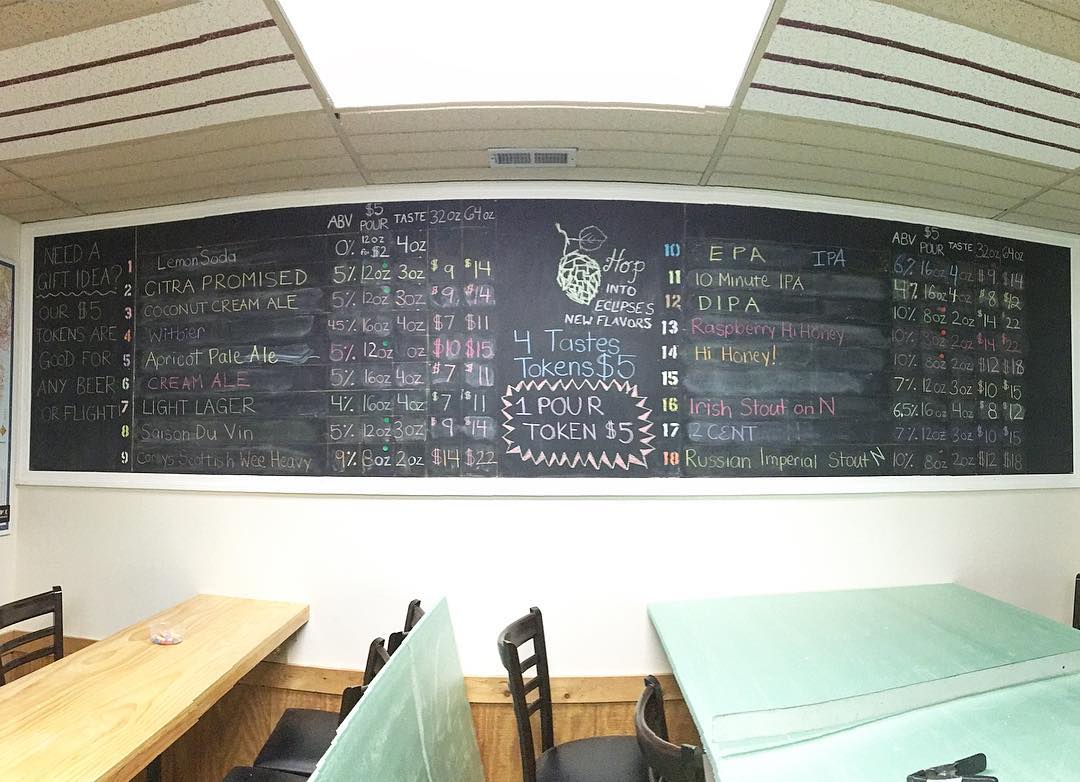 NEED A
GIFT IDEA?
OUR $5
TOKENS ARE
GOOD FOR
ANY BEER
OR FLIGHT
ABV $5 POUR TASTE 32oz 64oz
1 Lemon Soda 0% 12oz For $2 4oz
2 CITRA PROMISED 5% 12oz 3oz $9 $14
3 COCONUT CREAM ALE 5% 12oz 3oz $9 $14
4 Witbier 45% 16oz 4oz $7 $11
5 Apricot Pale Ale 5% 12oz 1oz $10 $15
6 CREAM ALE 5% 16oz 4oz $7 $11
7 LIGHT LAGER 4% 16oz 4oz $7 $11
8 Saison Du Vin 5% 12oz 3oz $9 $14
9 Scottish Wee Heavy 9% 8oz 2oz $14 $22
Hop
INTO
ECLIPSE'S
NEW FLAVORS
4 Tastes
Tokens $5
1 POUR
TOKEN $5
ABV $5 POUR TASTE 32oz 64oz
10 EPA IPA 6% 16oz 4oz $9 $14
11 10 Minute IPA 4% 16oz 4oz $8 $12
12 DIPA 10% 8oz 2oz $14 $22
13 Raspberry Hi Honey 10% 8oz 2oz $14 $22
14 Hi Honey! 10% 8oz 2oz $12 $18
15 7% 12oz 3oz $10 $15
16 Irish Stout on N 6.5% 16oz 4oz $8 $12
17 2 CENT 7% 12oz 3oz $10 $15
18 Russian Imperial Stout N 10% 8oz 2oz $12 $18